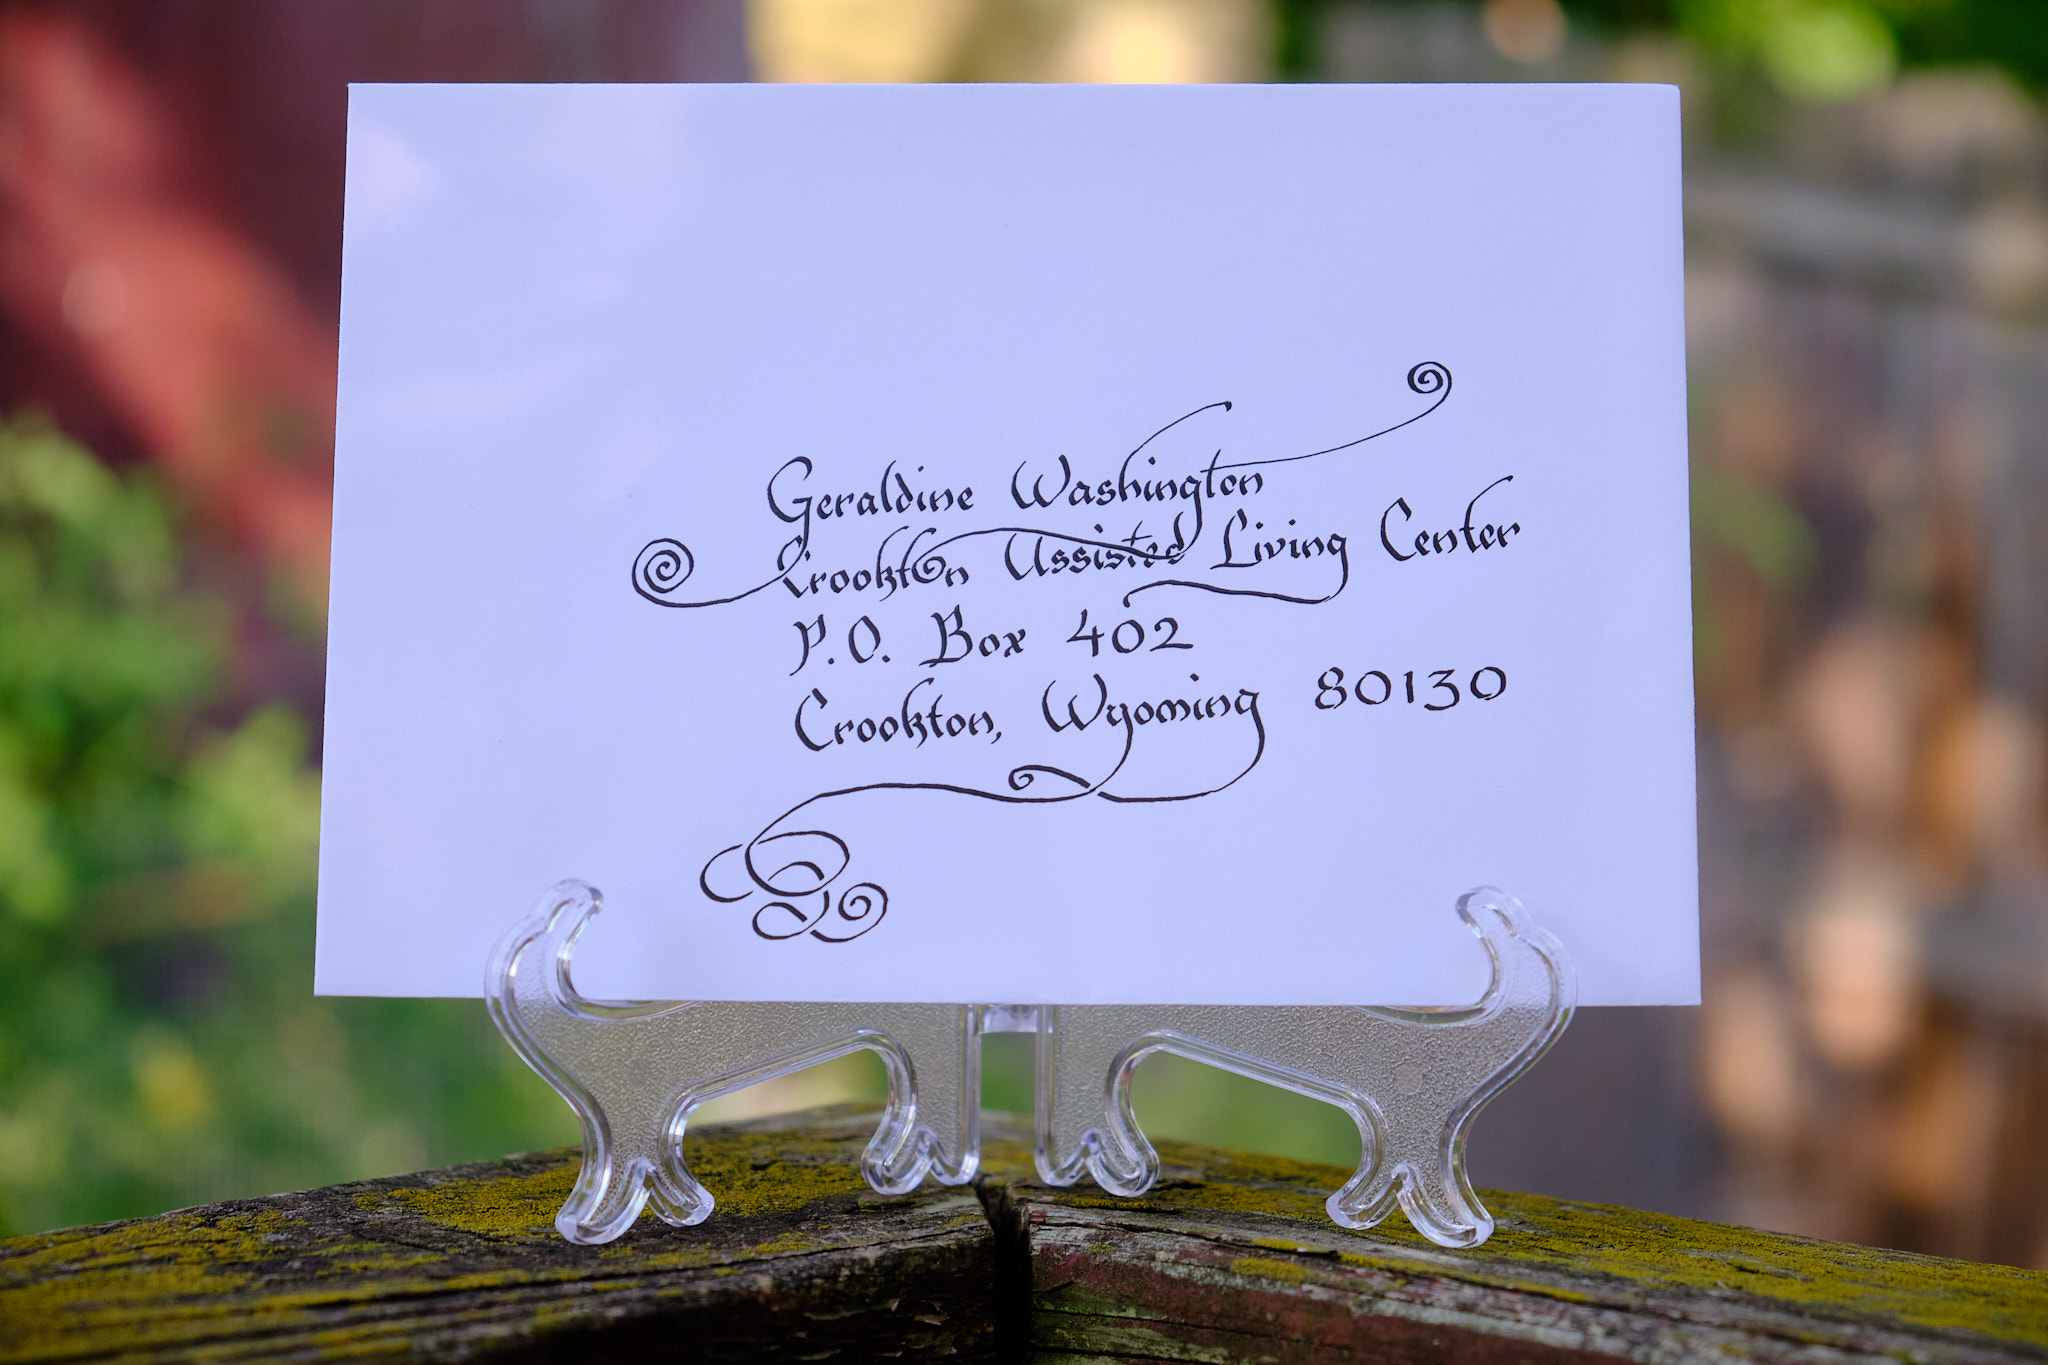 Geraldine Washington
Crookton Assisted Living Center
P.O. Box 402
Crookton, Wyoming 80130